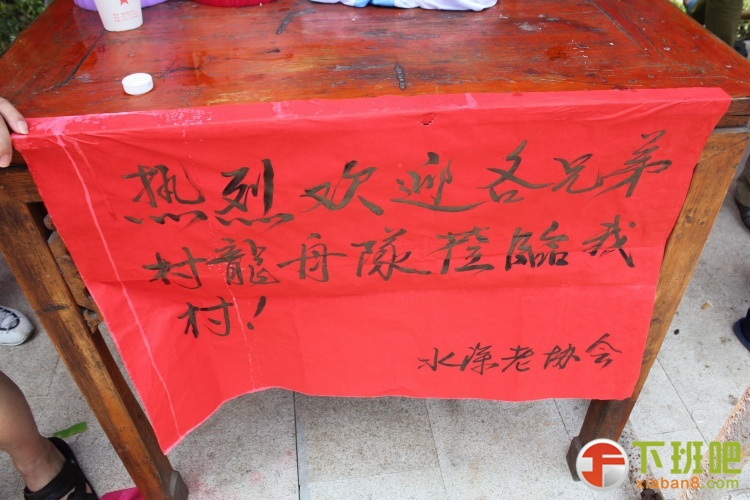 热烈欢迎各兄弟
村龍舟隊莅臨我
村！
水深老协会
下班吧
xiaban8.com